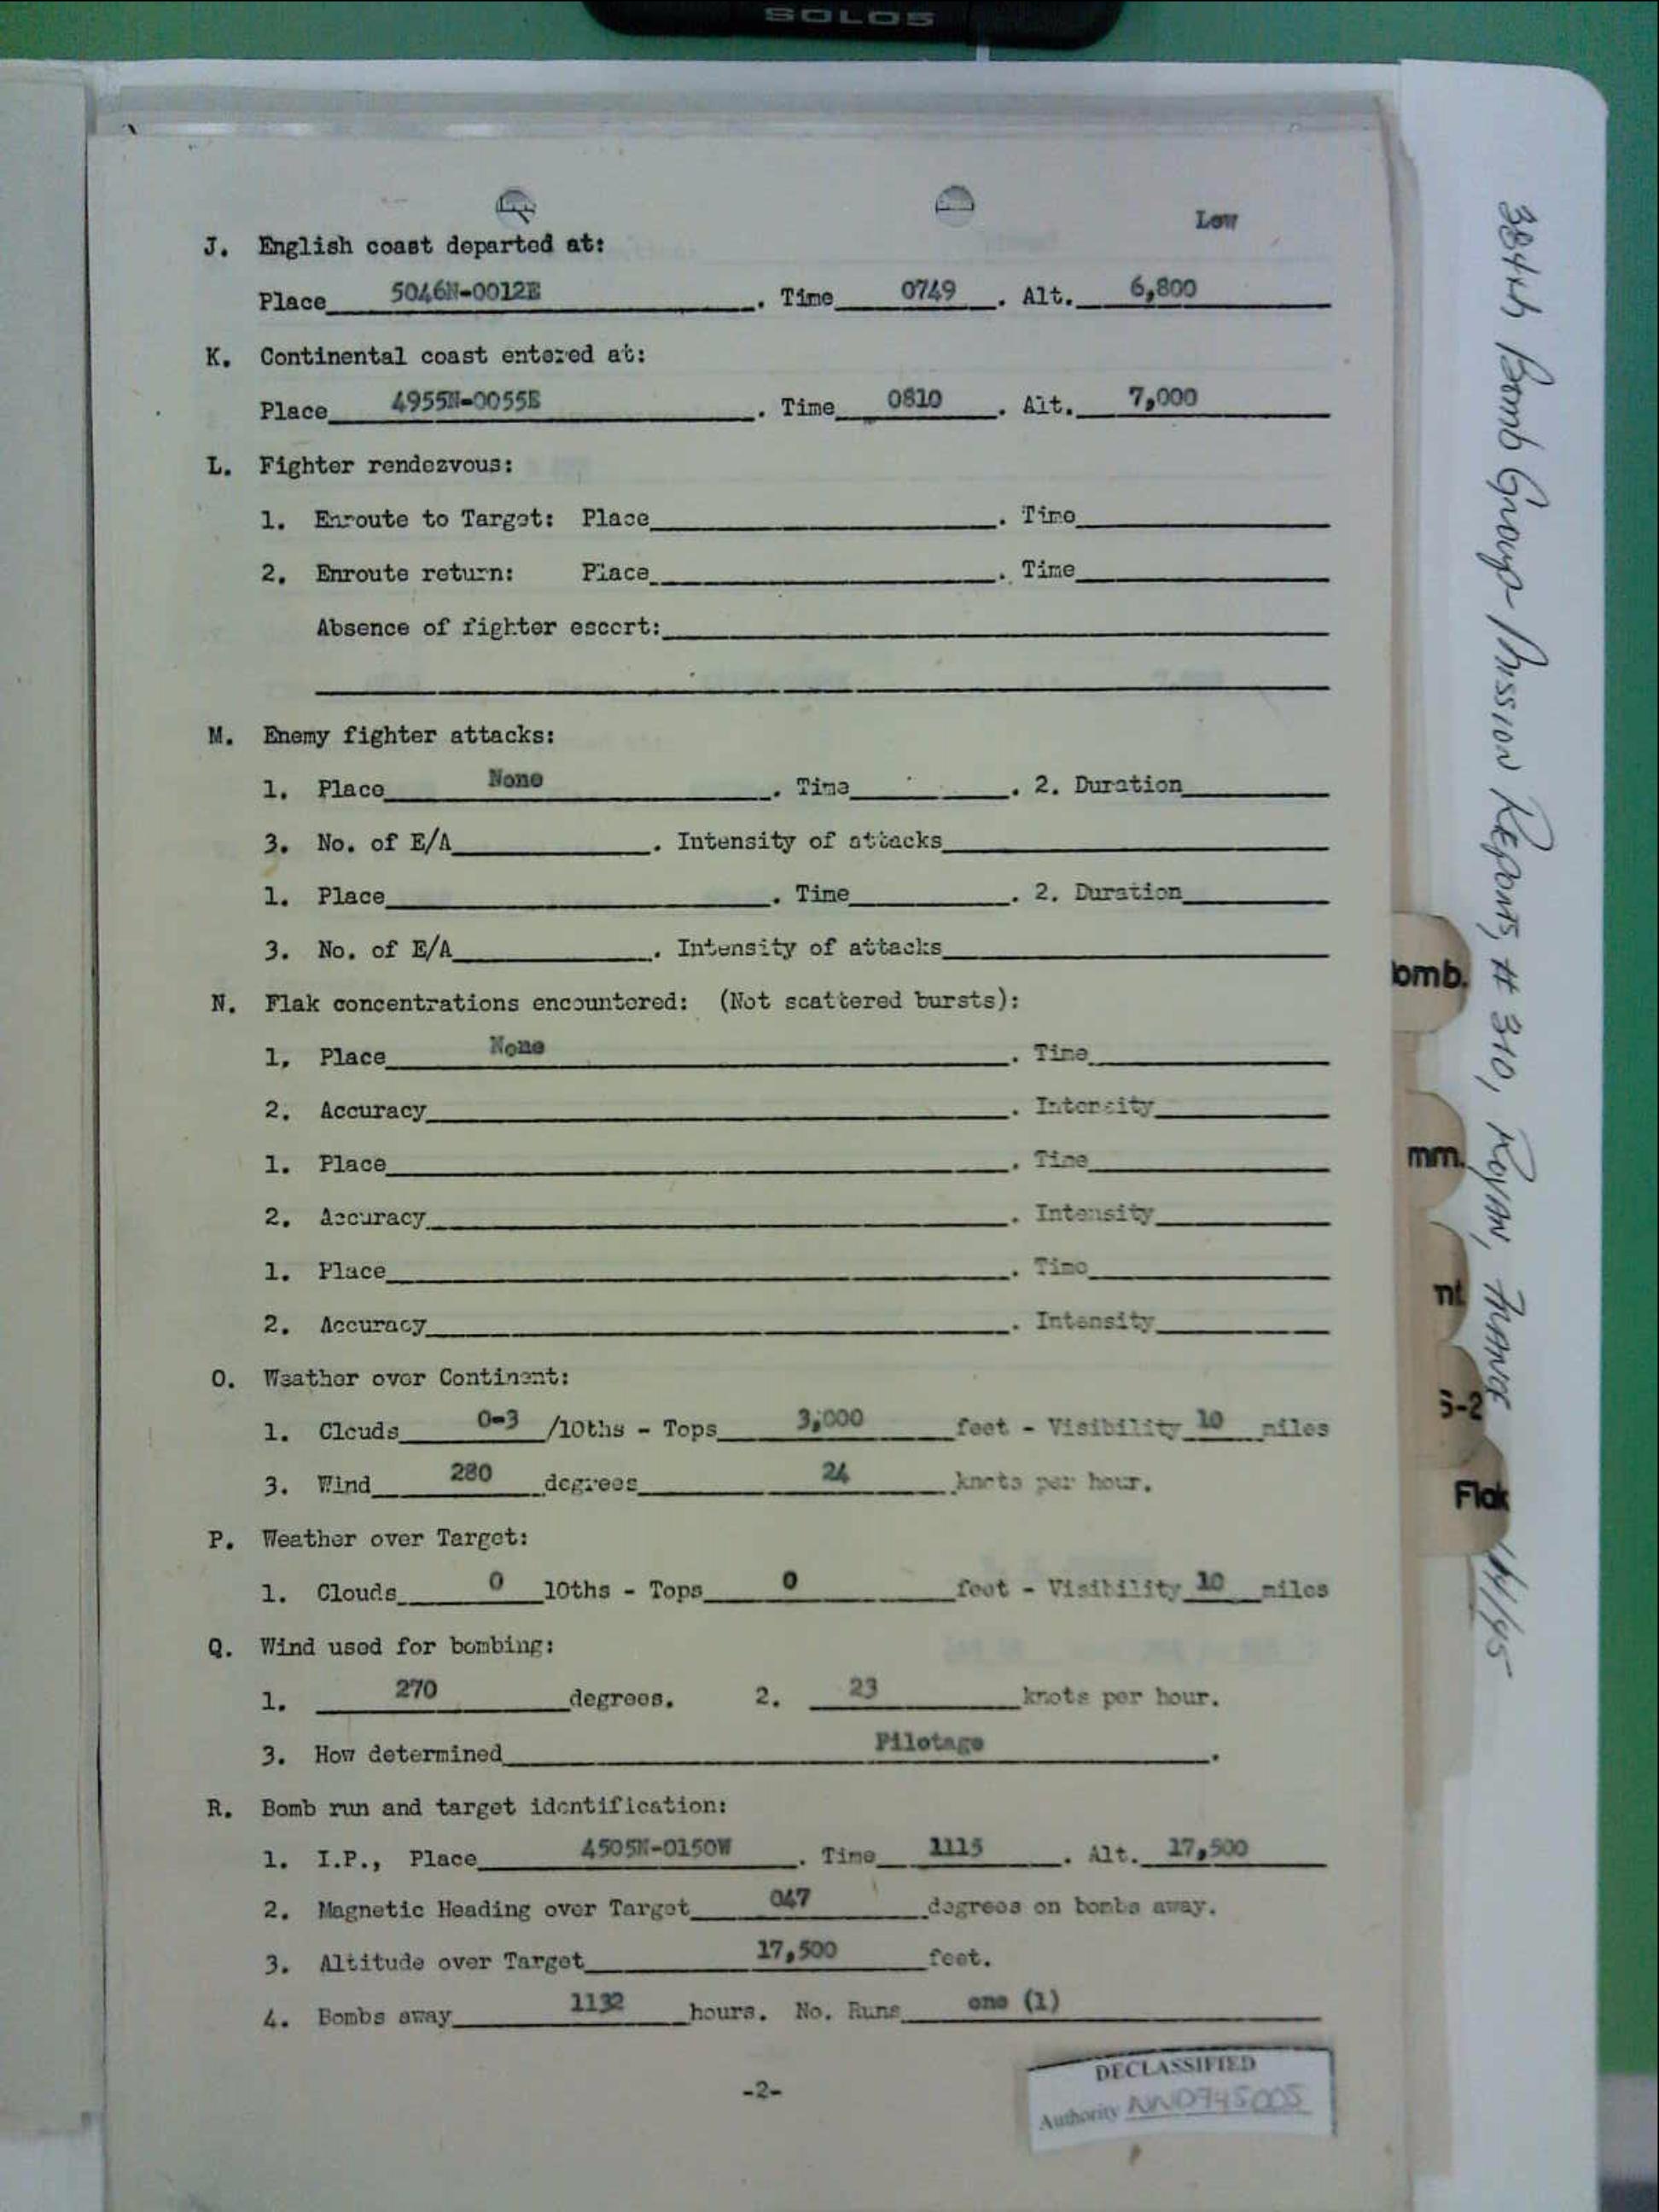 SOLO5
Low
J. English coast departed at:
Place 5046N-0012E . Time 0749 . Alt. 6,800
K. Continental coast entered at:
Place 4955N-0055E . Time 0810 . Alt. 7,000
L. Fighter rendezvous:
1. Enroute to Target: Place . Time
2. Enroute return: Place . Time
Absence of fighter escort:
M. Enemy fighter attacks:
1. Place None . Time . 2. Duration
3. No. of E/A . Intensity of attacks
1. Place . Time . 2. Duration
3. No. of E/A . Intensity of attacks
N. Flak concentrations encountered: (Not scattered bursts):
1. Place None . Time
2. Accuracy . Intensity
1. Place . Time
2. Accuracy . Intensity
1. Place . Time
2. Accuracy . Intensity
O. Weather over Continent:
1. Clouds 0-3 /10ths - Tops 3,000 feet - Visibility 10 miles
3. Wind 280 degrees 24 knots per hour.
P. Weather over Target:
1. Clouds 0 10ths - Tops 0 feet - Visibility 10 miles
Q. Wind used for bombing:
1. 270 degrees. 2. 23 knots per hour.
3. How determined Pilotage .
R. Bomb run and target identification:
1. I.P., Place 4505N-0150W . Time 1115 . Alt. 17,500
2. Magnetic Heading over Target 047 degrees on bombs away.
3. Altitude over Target 17,500 feet.
4. Bombs away 1132 hours. No. Runs one (1)
-2-
DECLASSIFIED
Authority NND745005
384th Bomb Group-Mission Reports, # 310, Royan, France 14/45
omb.
mm.
nt
S-2
Flak